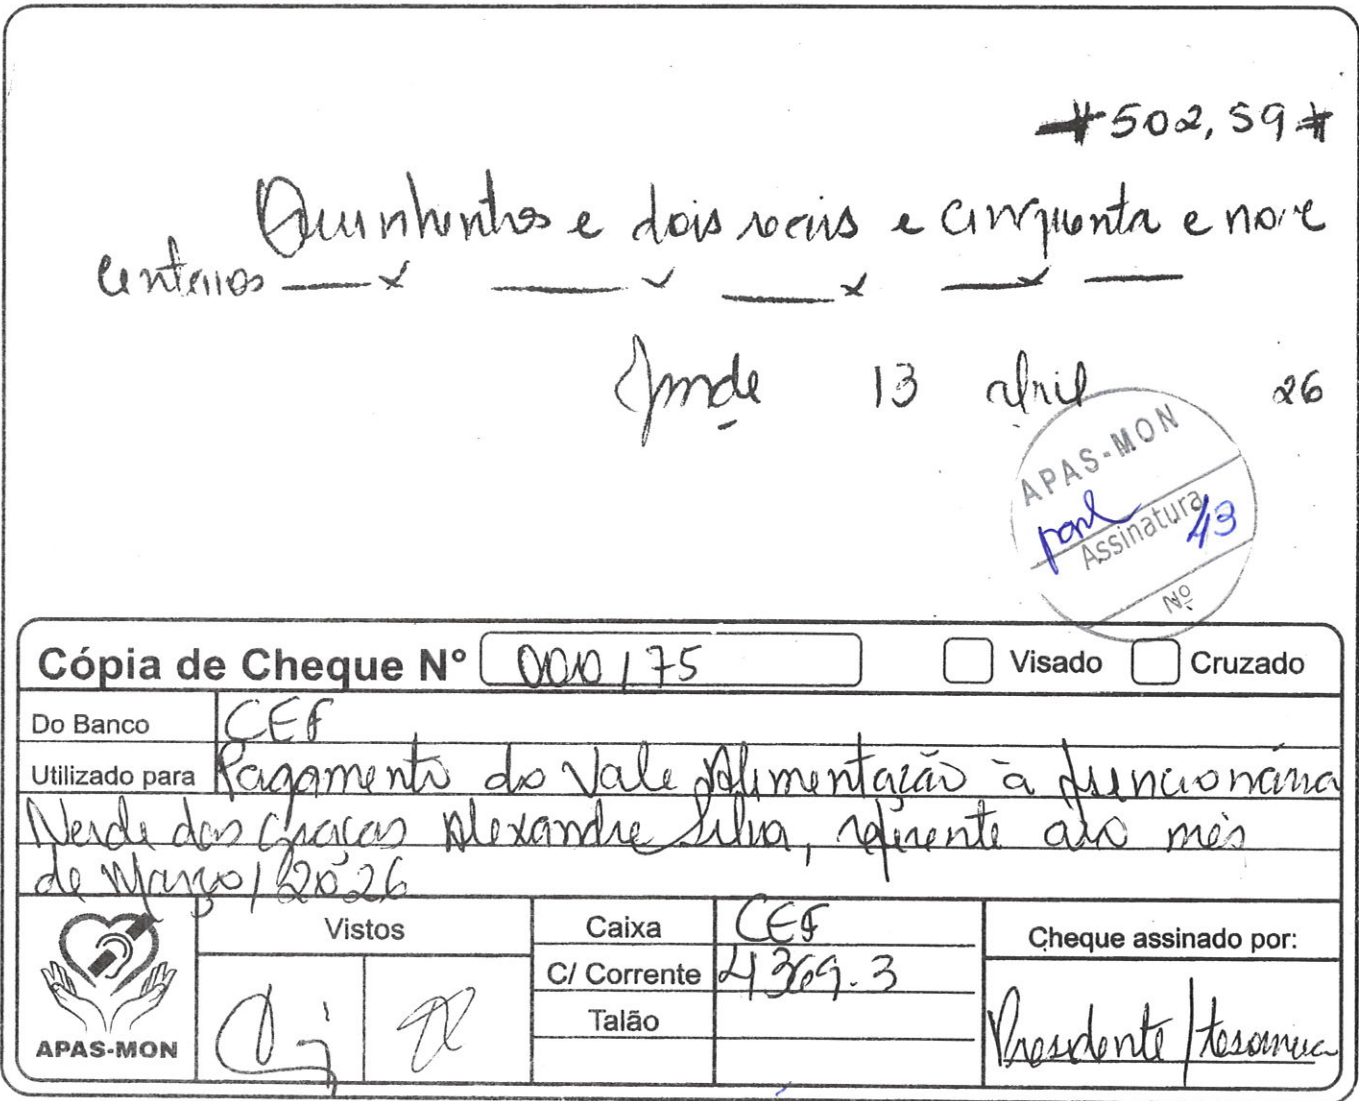 #502,59#
Quinhentos e dois reais e cinquenta e nove
centavos
13 abril 26
APAS-MON
Assinatura 43
Nº
Cópia de Cheque Nº 000175 Visado Cruzado
Do Banco CEF
Utilizado para Pagamento do Vale Alimentação à funcionária
das Graças Alexandre Silva, referente ao mês
de Março/2026
Vistos Caixa CEF Cheque assinado por:
C/ Corrente 4369.3
Talão
APAS-MON Presidente/tesoureira